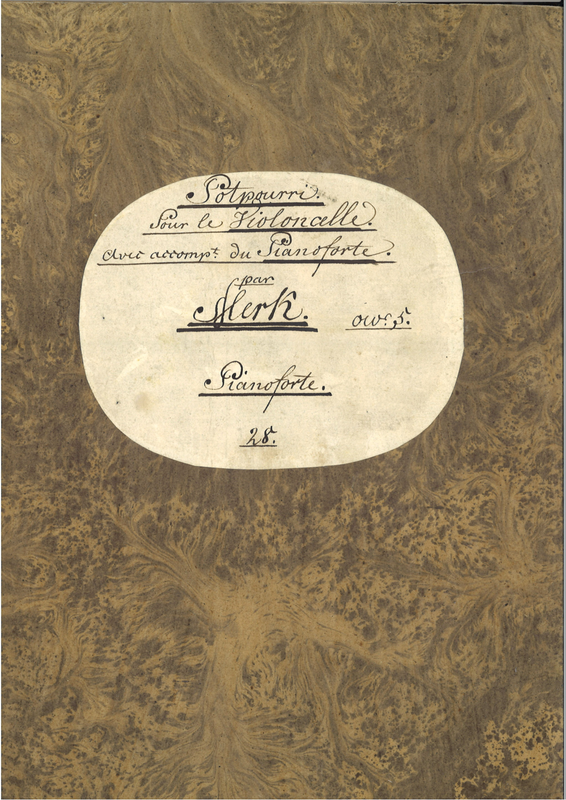 Potpourri.
Pour le Violoncelle.
Avec accompt. du Pianoforte.
par
Merk. owr. 5.
Pianoforte.
28.